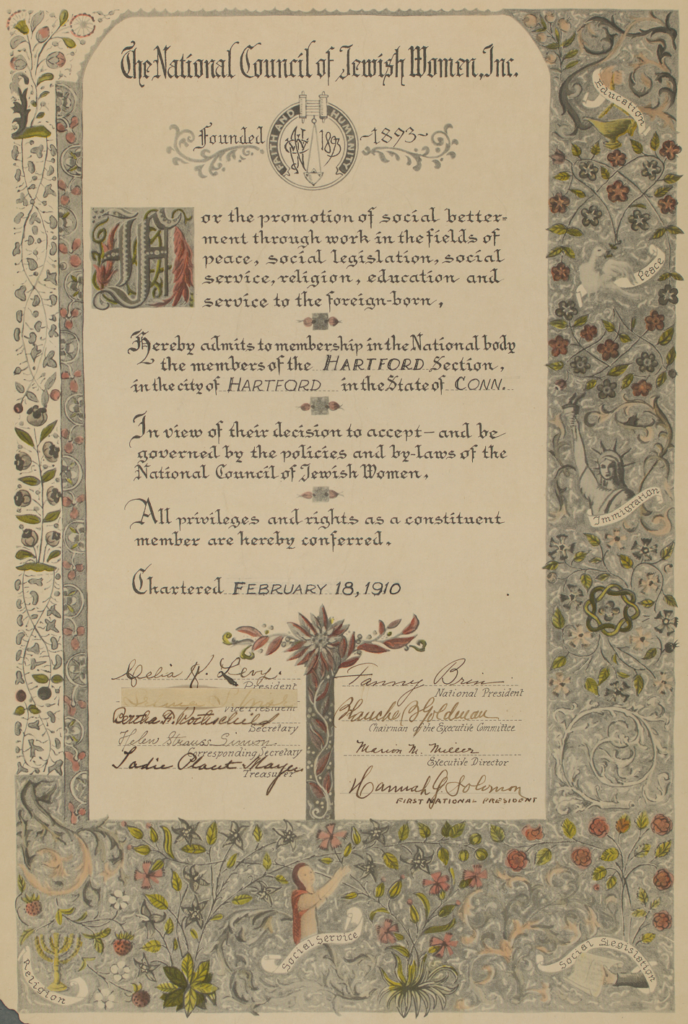 The National Council of Jewish Women, Inc.
Founded
FAITH AND HUMANITY
1893
~1893~
For the promotion of social better-
ment through work in the fields of
peace, social legislation, social
service, religion, education and
service to the foreign-born,
Hereby admits to membership in the National body
the members of the HARTFORD Section,
in the city of HARTFORD in the State of CONN.
In view of their decision to accept — and be
governed by the policies and by-laws of the
National Council of Jewish Women.
All privileges and rights as a constituent
member are hereby conferred.
Chartered FEBRUARY 18, 1910
Celia H. Levy.
President
Vice President
Rothschild
Secretary
Helen Strauss Simon
Corresponding Secretary
Sadie Plaut Mayer
Treasurer
Fanny Brin
National President
Blanche B Goldman
Chairman of the Executive Committee
Marion M. Miller
Executive Director
Hannah G Solomon
FIRST NATIONAL PRESIDENT
Education
Peace
Immigration
Religion
Social Service
Social Legislation